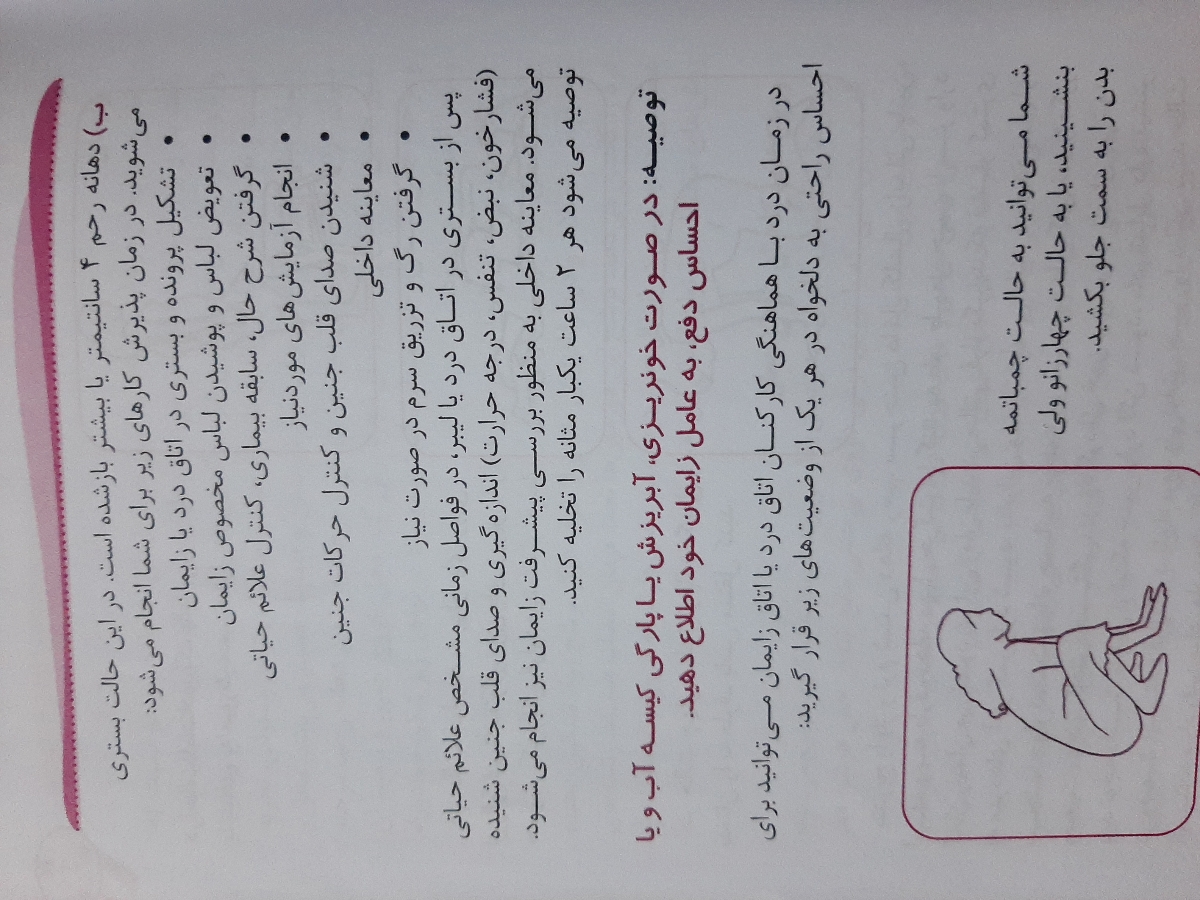 ب) دهانه رحم ۴ سانتیمتر یا بیشتر بازشده است. در این حالت بستری
می‌شوید. در زمان پذیرش کارهای زیر برای شما انجام می‌شود:
• تشکیل پرونده و بستری در اتاق درد یا زایمان
• تعویض لباس و پوشیدن لباس مخصوص زایمان
• گرفتن شرح حال، سابقه بیماری، کنترل علائم حیاتی
• انجام آزمایش‌های موردنیاز
• شنیدن صدای قلب جنین و کنترل حرکات جنین
• معاینه داخلی
• گرفتن رگ و تزریق سرم در صورت نیاز
پس از بستری در اتاق درد یا لیبر، در فواصل زمانی مشخص علائم حیاتی
(فشارخون، نبض، تنفس، درجه حرارت) اندازه‌گیری و صدای قلب جنین شنیده
می‌شود. معاینه داخلی به منظور بررسی پیشرفت زایمان نیز انجام می‌شود.
توصیه می‌شود هر ۲ ساعت یکبار مثانه را تخلیه کنید.
توصیه: در صورت خونریزی، آبریزش یا پارگی کیسه آب و یا
احساس دفع، به عامل زایمان خود اطلاع دهید.
در زمان درد با هماهنگی کارکنان اتاق درد یا اتاق زایمان می‌توانید برای
احساس راحتی به دلخواه در هر یک از وضعیت‌های زیر قرار گیرید:
شما می‌توانید به حالت چمباتمه
بنشینید، یا به حالت چهارزانو ولی
بدن را به سمت جلو بکشید.